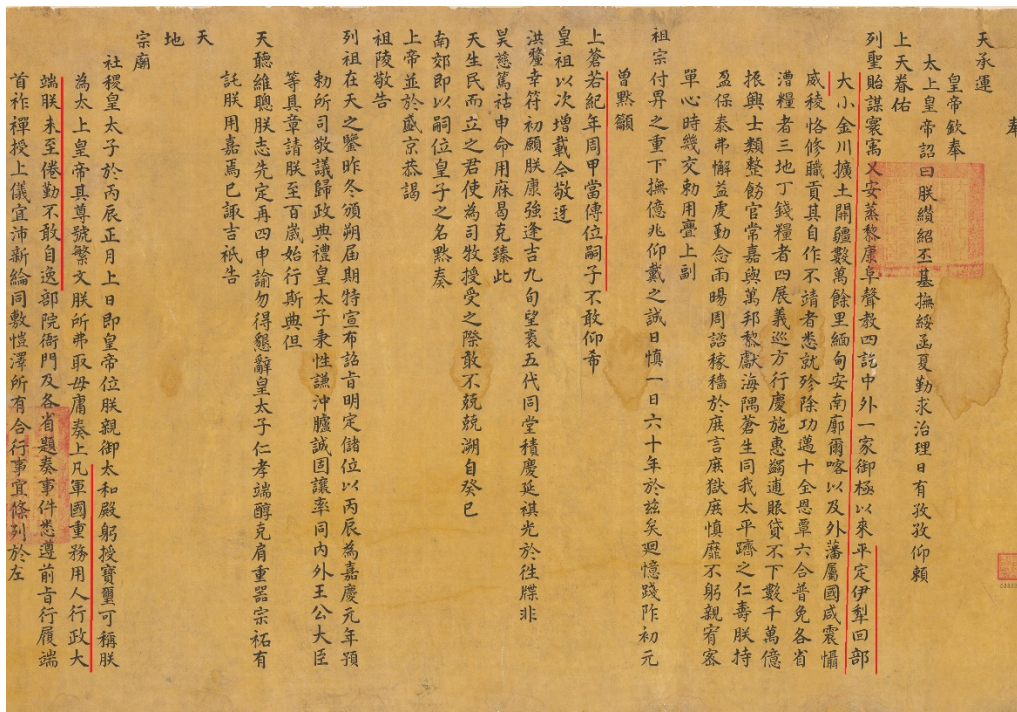 奉
天承運
皇帝欽奉
太上皇帝詔曰朕纘紹丕基撫綏函夏勤求治理日有孜孜仰賴
上天眷佑
列聖貽謀寰寓乂安蒸黎康阜聲教四訖中外一家御極以來平定伊犁回部
大小金川擴土開疆數萬餘里緬甸安南廓爾喀以及外藩屬國咸震懾
威稜恪修職貢其自作不靖者悉就殄除功邁十全恩覃六合普免各省
漕糧者三地丁錢糧者四展義巡方行慶施惠蠲逋賑貸不下數千萬億
振興士類整飭官常嘉與萬邦黎獻海隅蒼生同我太平躋之仁壽朕持
盈保泰弗懈益虔勤念雨暘周諮稼穡於庶言庶獄庶慎靡不躬親宥密
單心時幾交勑用亹上副
祖宗付畀之重下撫億兆仰戴之誠日慎一日六十年於茲矣廻憶踐阼初元
曾默籲
上蒼若紀年周甲當傳位嗣子不敢仰希
皇祖以次增載今敬迓
洪釐幸符初願朕康強逢吉九旬望袠五代同堂積慶延祺光於徃牒非
昊慈篤祜申命用庥曷克臻此
天生民而立之君使為司牧授受之際敢不兢兢溯自癸巳
南郊即以嗣位皇子之名默奏
上帝並於盛京恭謁
祖陵敬告
列祖在天之鑒昨冬頒朔屆期特宣布詔旨明定儲位以丙辰為嘉慶元年預
勅所司敬議歸政典禮皇太子秉性謙沖臚誠固讓率同內外王公大臣
等具章請朕至百歲始行斯典但
天聽維聰朕志先定再四申諭勿得懇辭皇太子仁孝端醇克肩重器宗祏有
託朕用嘉焉已諏吉祗告
天
地
宗廟
社稷皇太子於丙辰正月上日即皇帝位朕親御太和殿躬授寶璽可稱朕
為太上皇帝其尊號繁文朕所弗取毋庸奏上凡軍國重務用人行政大
端朕未至倦勤不敢自逸部院衙門及各省題奏事件悉遵前旨行履端
首祚禪授上儀宜沛新綸同敷愷澤所有合行事宜條列於左